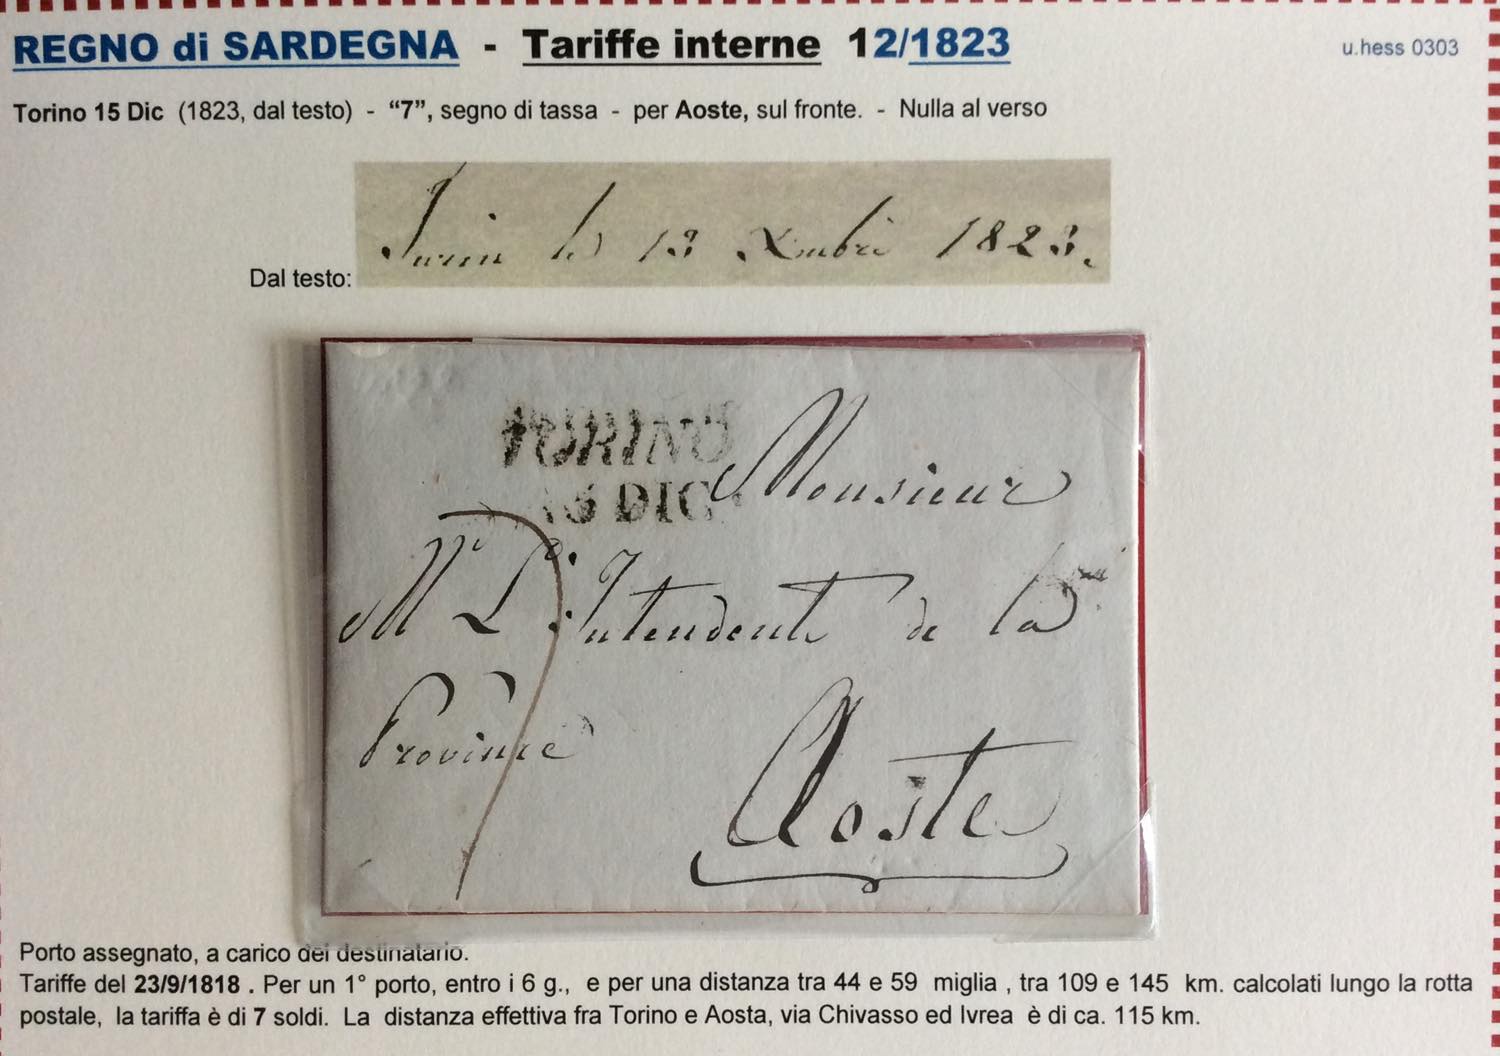 REGNO di SARDEGNA - Tariffe interne 12/1823
u.hess 0303
Torino 15 Dic (1823, dal testo) - “7”, segno di tassa - per Aoste, sul fronte. - Nulla al verso
Dal testo:
Turin le 13 Xmbre 1823.
TORINO
DIC
Monsieur
Mr L'Intendente de la
Province
7
Aoste
Porto assegnato, a carico del destinatario.
Tariffe del 23/9/1818 . Per un 1° porto, entro i 6 g., e per una distanza tra 44 e 59 miglia , tra 109 e 145 km. calcolati lungo la rotta
postale, la tariffa è di 7 soldi. La distanza effettiva fra Torino e Aosta, via Chivasso ed Ivrea è di ca. 115 km.